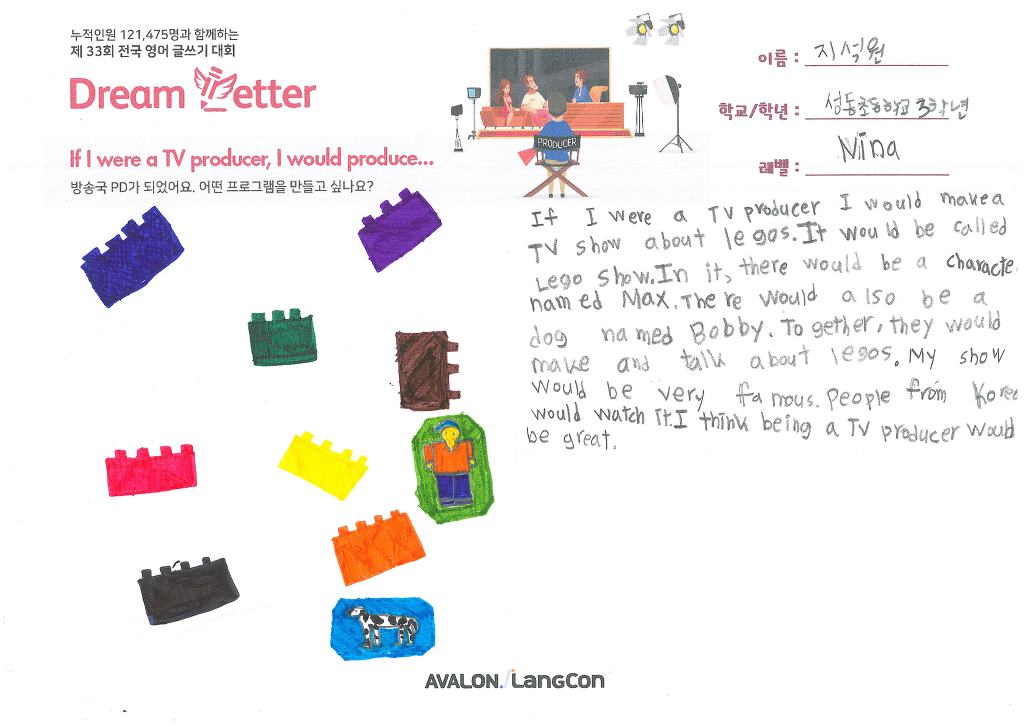 누적인원 121,475명과 함께하는
제 33회 전국 영어 글쓰기 대회
Dream Letter
If I were a TV producer, I would produce...
방송국 PD가 되었어요. 어떤 프로그램을 만들고 싶나요?
PRODUCER
이름 : 지석원
학교/학년 : 성동초등학교 3학년
레벨 : Nina
If I were a TV producer I would make a
TV show about legos. It would be called
Lego Show. In it, there would be a characte
named Max. There would also be a
dog named Bobby. Together, they would
make and talk about legos. My show
would be very famous. People from Korea
would watch it. I think being a TV producer would
be great.
AVALON. LangCon